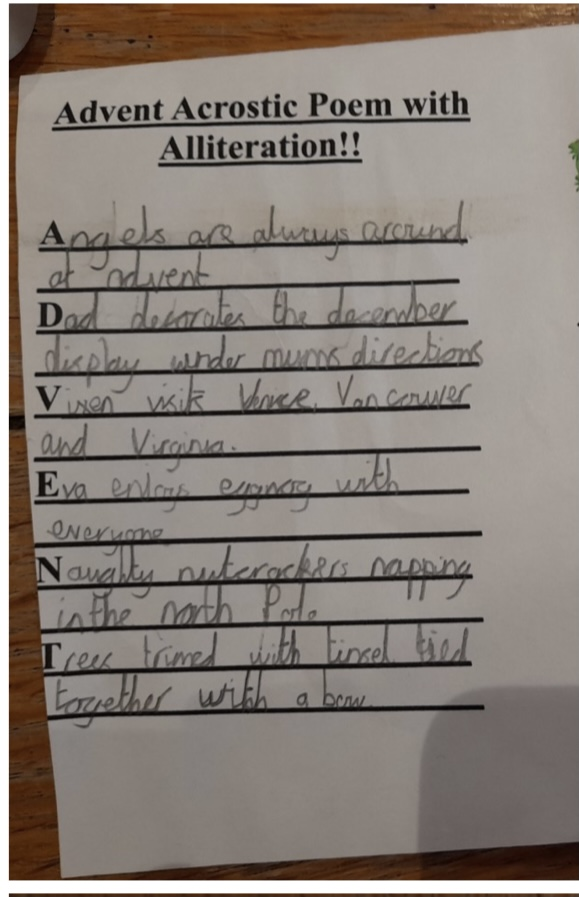 Advent Acrostic Poem with
Alliteration!!
Angels are always around
at advent
Dad decorates the december
display under mums directions
Vixen visits Venice, Vancouver
and Virginia.
Eva enjoys eggnog with
everyone
Naughty nutcrackers napping
in the north Pole
Trees trimed with tinsel tied
together with a bow.